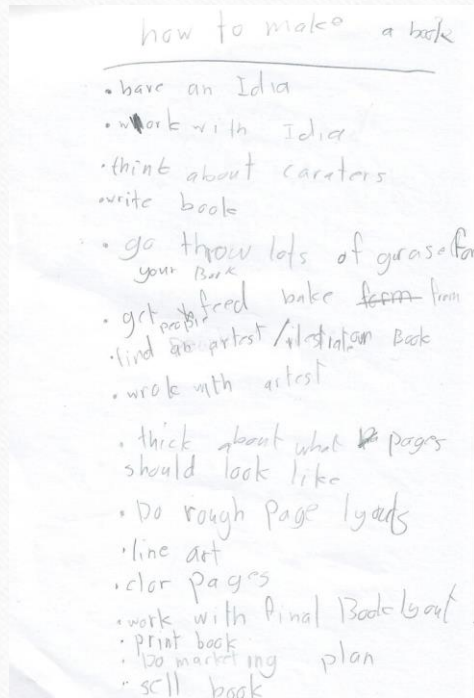 how to make a book
• have an Idia
• work with Idia
• think about caraters
• write book
• go throw lots of
your Book
• get feed bake from
people
• find an artest / Book
• wrok with artest
• thick about what pages
should look like
• Do rough Page lyouts
• line art
• clor pages
• work with final Book lyout
• print book
• Do marketing plan
• sell book